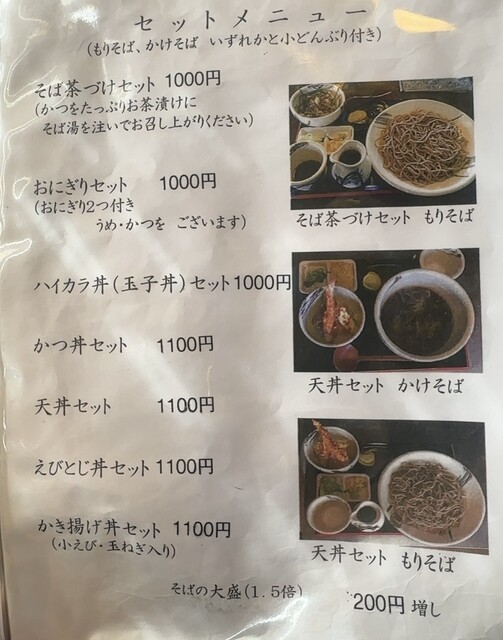 セットメニュー
(もりそば、かけそば いずれかと小どんぶり付き)
そば茶づけセット 1000円
(かつをたっぷりお茶漬けに
そば湯を注いでお召し上がりください)
おにぎりセット 1000円
(おにぎり2つ付き
うめ・かつを ございます)
ハイカラ丼(玉子丼)セット1000円
かつ丼セット 1100円
天丼セット 1100円
えびとじ丼セット1100円
かき揚げ丼セット 1100円
(小えび・玉ねぎ入り)
そばの大盛(1.5倍) 200円 増し
そば茶づけセット もりそば
天丼セット かけそば
天丼セット もりそば